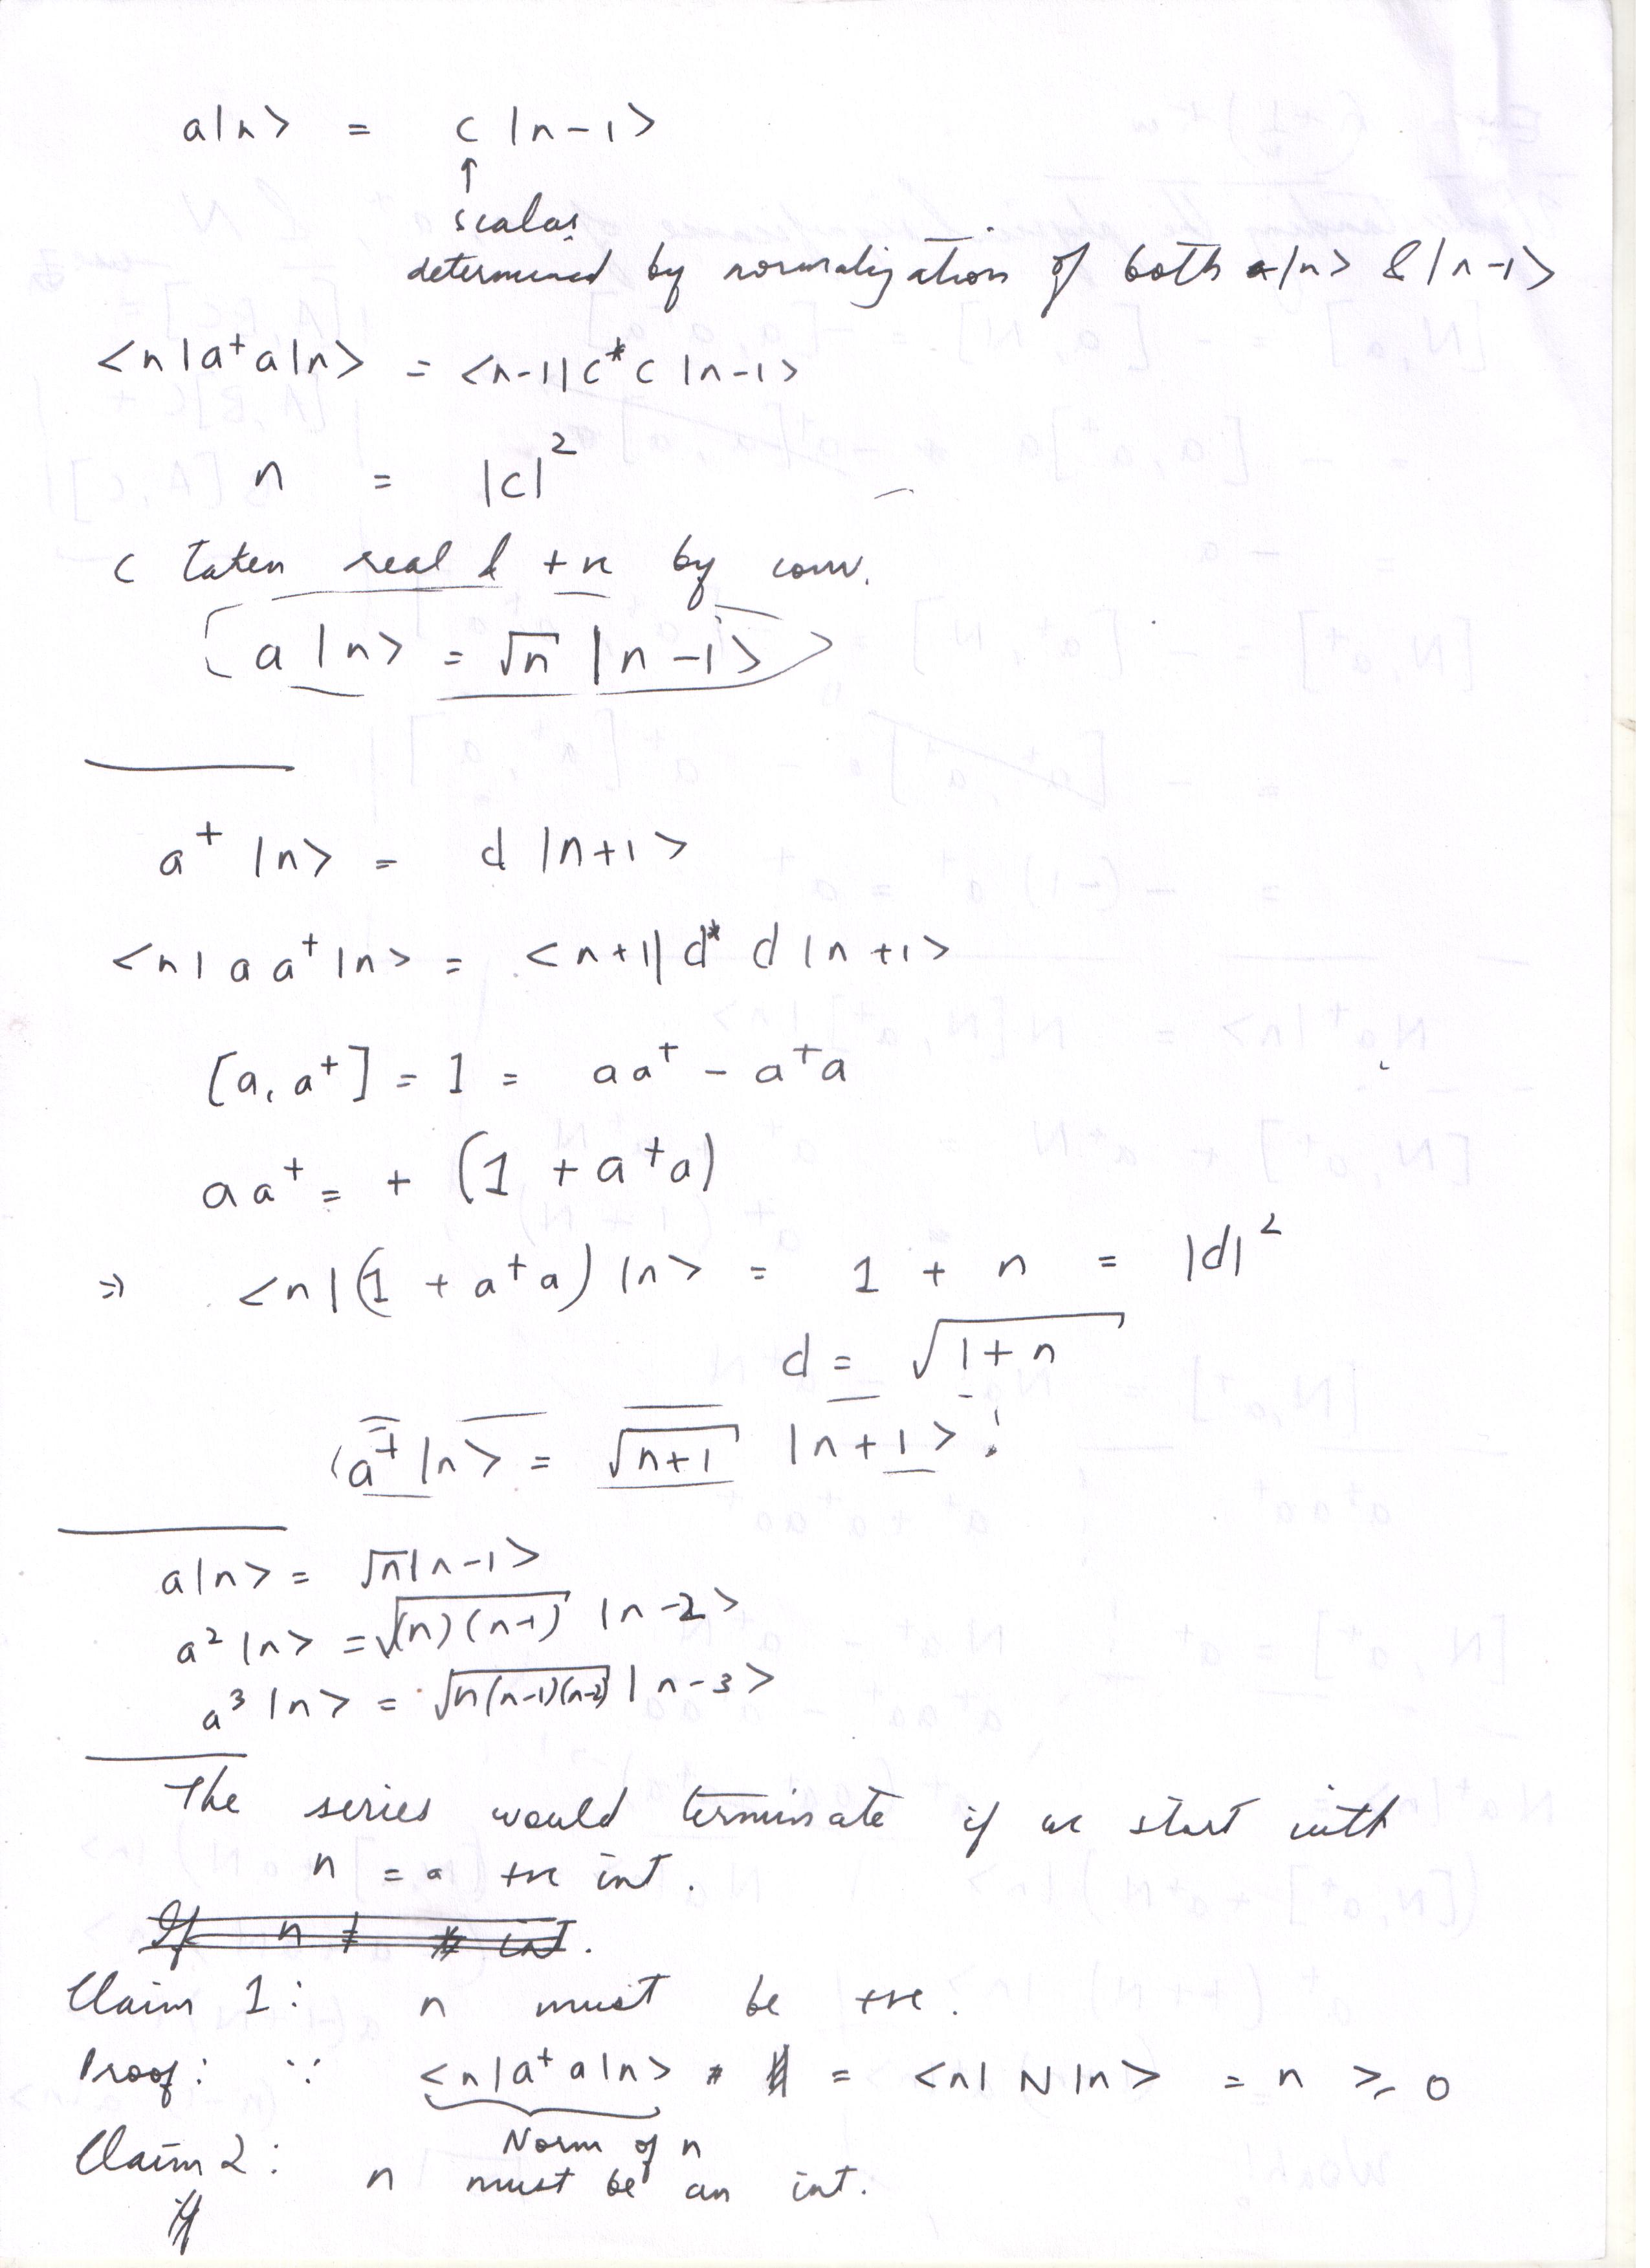 a|n> = c |n-1>
↑
scalar
determined by normalization of both a|n> & |n-1>
<n|a⁺a|n> = <n-1|c*c|n-1>
n = |c|²
c taken real & +ve by conv.
a|n> = √n |n-1>
a⁺|n> = d|n+1>
<n|aa⁺|n> = <n+1|d* d|n+1>
[a, a⁺] = 1 = aa⁺ - a⁺a
aa⁺ = + (1 + a⁺a)
⇒ <n|(1 + a⁺a)|n> = 1 + n = |d|²
d = √(1+n)
a⁺|n> = √(n+1) |n+1>
a|n> = √n|n-1>
a²|n> = √((n)(n-1)) |n-2>
a³|n> = √(n(n-1)(n-2)) |n-3>
The series would terminate if we start with
n = a +ve int.
If n ≠ int.
Claim 1: n must be +ve.
Proof: ∵ <n|a⁺a|n> = <n|N|n> = n ≥ 0
Norm of n
Claim 2: n must be an int.
If